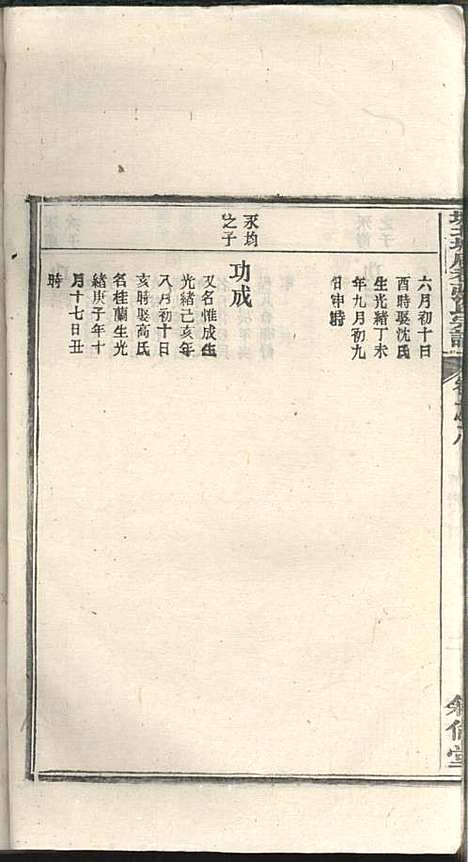 六月初十日
酉時娶沈氏
生光緒丁未
年九月初九
日申時
永均
之子
功成
又名惟成生
光緒己亥年
八月初十日
亥時娶高氏
名桂蘭生光
緒庚子年十
月十七日丑
時